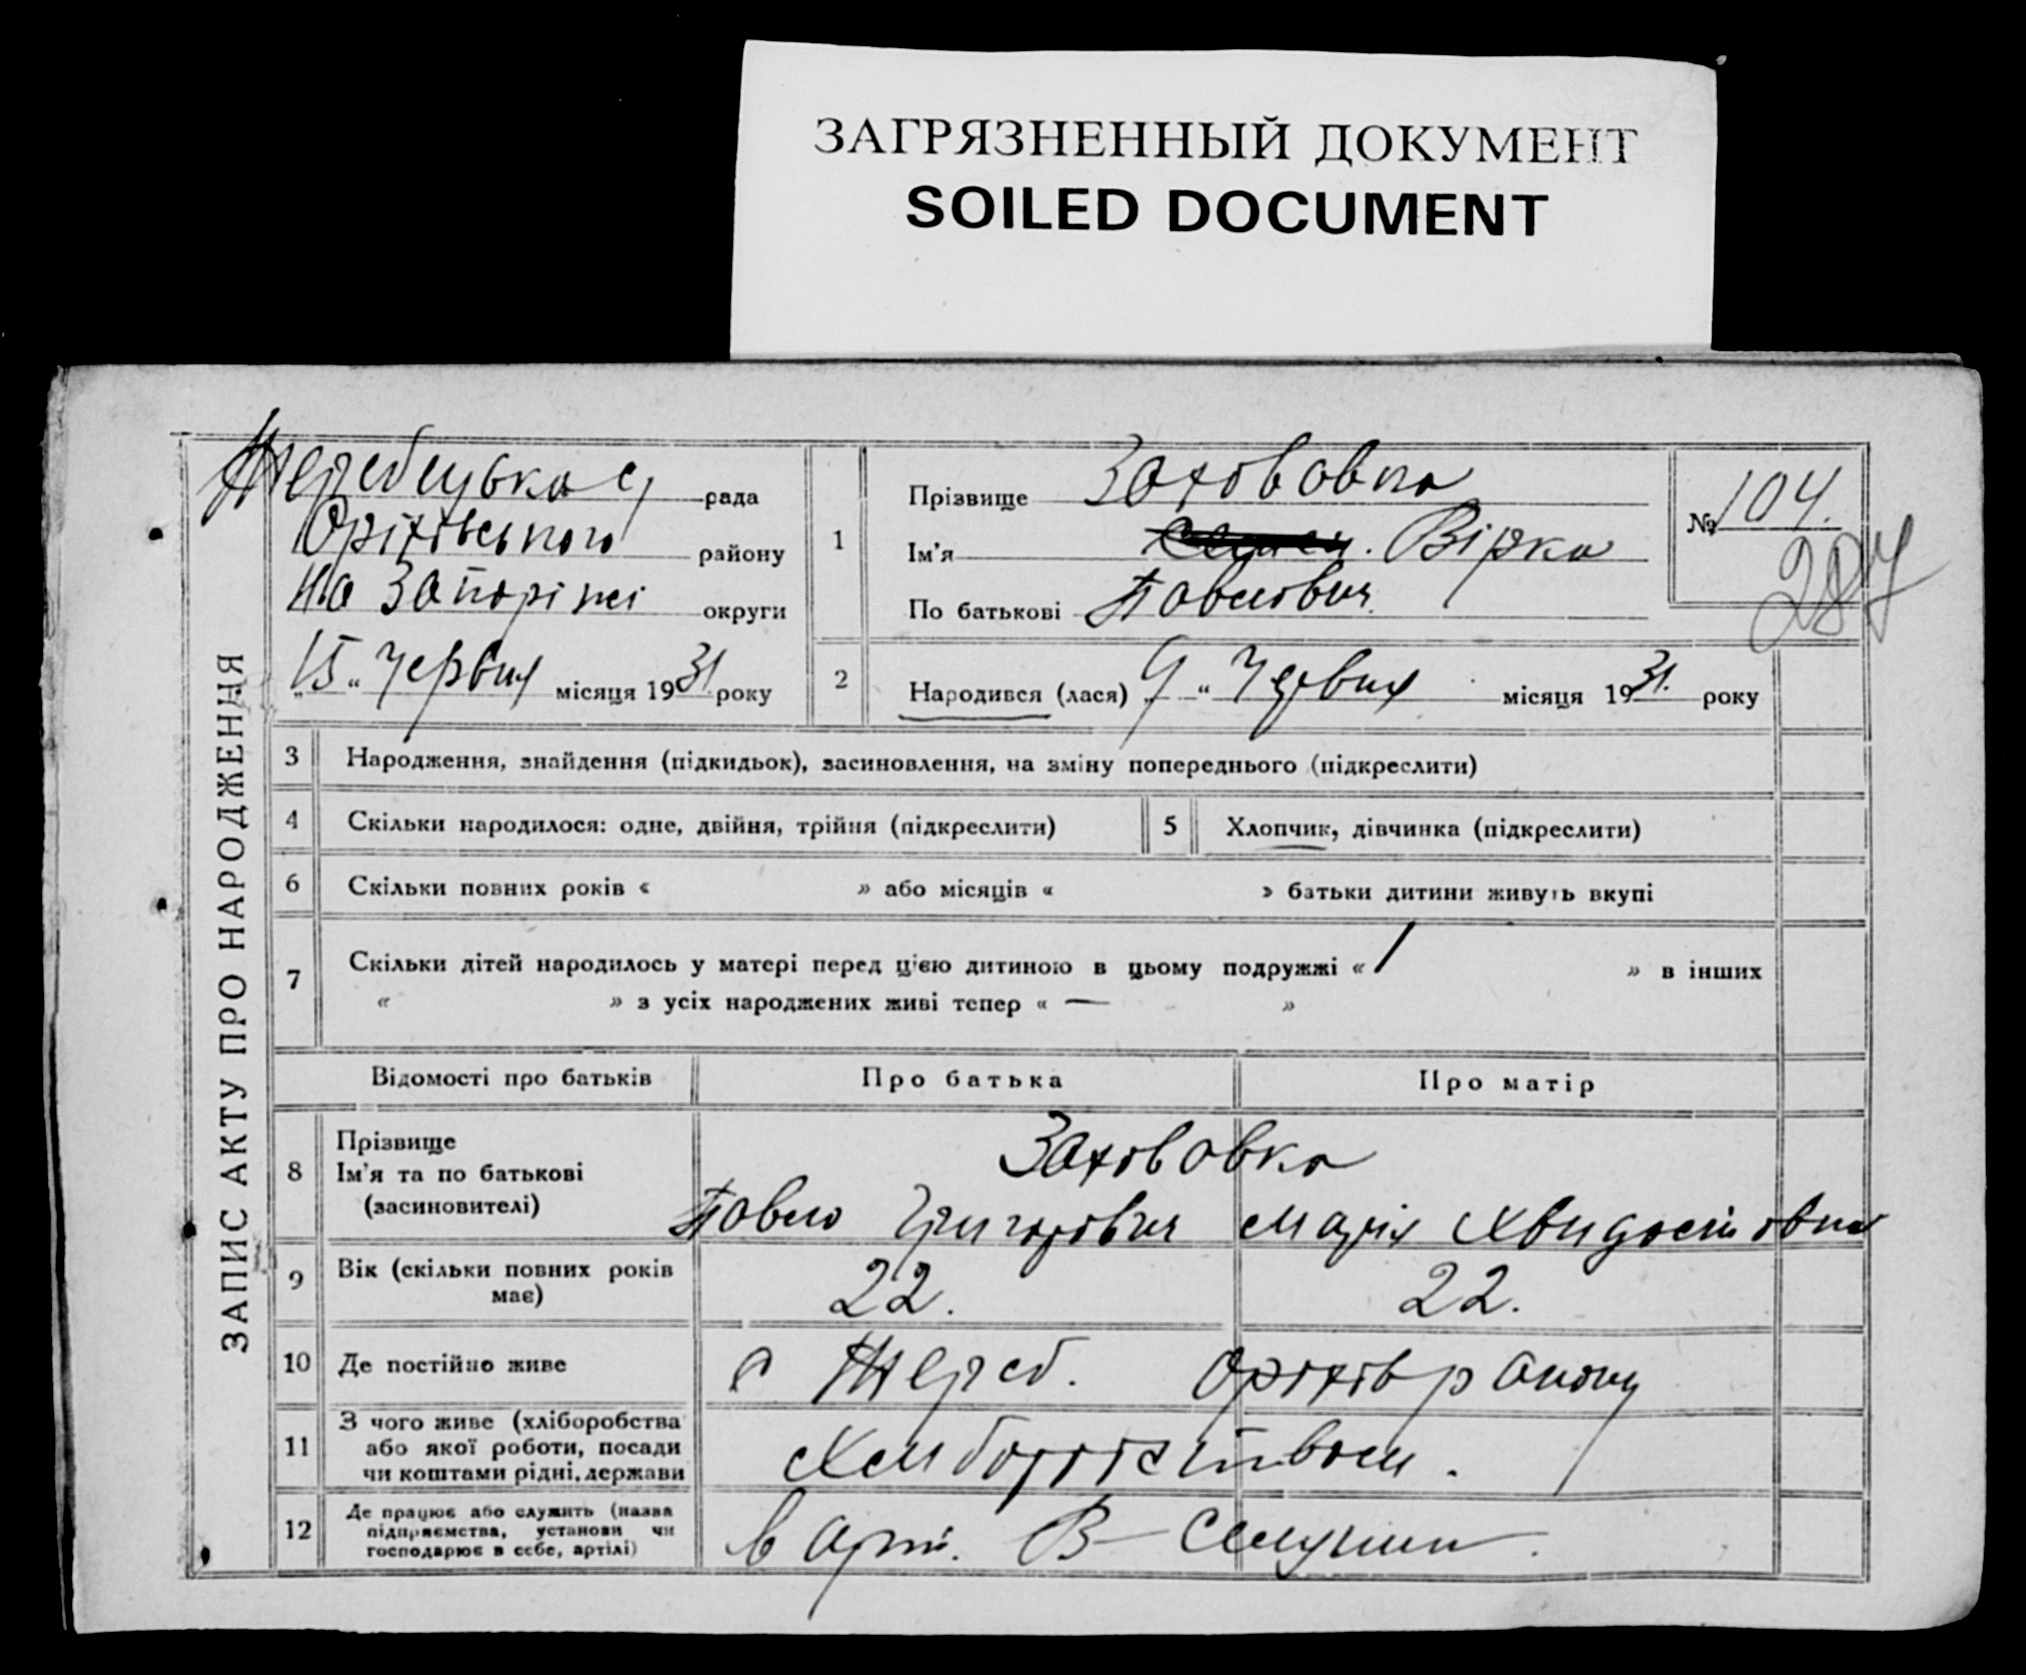 ЗАГРЯЗНЕННЫЙ ДОКУМЕНТ
SOILED DOCUMENT
ЗАПИС АКТУ ПРО НАРОДЖЕННЯ
Жеребецька с/ рада
Оріхівського району
на Запоріжі округи
„15“ Червня місяця 1931 року
1 Прізвище Заховавка
Ім'я Вірка
По батькові Павлович
№ 104.
287
2 Народився (лася) „9“ Червня місяця 1931. року
3 Народження, знайдення (підкидьок), засиновлення, на зміну попереднього (підкреслити)
4 Скільки народилося: одне, двійня, трійня (підкреслити)
5 Хлопчик, дівчинка (підкреслити)
6 Скільки повних років « » або місяців « » батьки дитини живуть вкупі
7 Скільки дітей народилось у матері перед цією дитиною в цьому подружжі « 1 » в інших
« » з усіх народжених живі тепер « — »
Відомості про батьків Про батька Про матір
8 Прізвище
Ім'я та по батькові
(засиновителі)
Заховавка
Павло Григорович Марія
9 Вік (скільки повних років
має)
22. 22.
10 Де постійно живе с Жереб. Оріхів району
11 З чого живе (хліборобства
або якої роботи, посади
чи коштами рідні, держави
Хлиборобством.
12 Де працює або служить (назва
підприємства, установи чи
господарює в себе, артілі)
в арт.